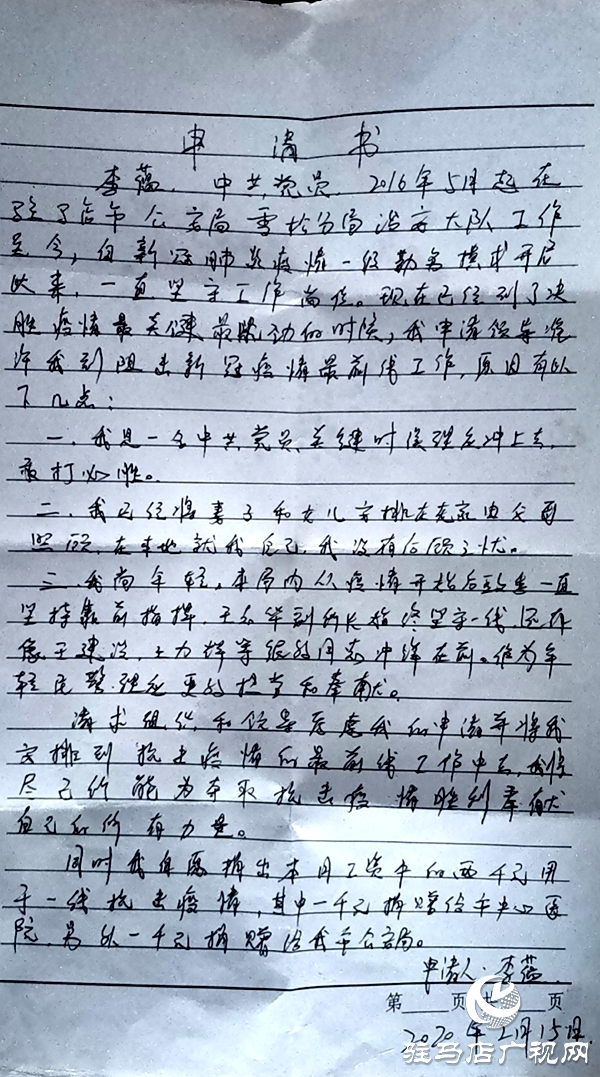 申请书
李蕴，中共党员，2016年5月起在
驻马店市公安局雪松分局治安大队工作
至今，自新冠肺炎疫情一级勤务模式开启
以来，一直坚守工作岗位。现在已经到了决
胜疫情最关键最吃劲的时候，我申请领导准
许我到阻击新冠疫情最前线工作，原因有以
下几点：
一、我是一名中共党员，关键时候理应冲上去，
敢打必胜。
二、我已经将妻子和女儿安排在老家由父母
照顾，在本地就我自己，我没有后顾之忧。
三、我尚年轻，本局内从疫情开始后 一直
坚持靠前指挥， 所长始终坚守一线，还有
像王建设、 等很多同志冲锋在前。作为年
轻民警，理应更多担当和奉献。
请求组织和领导考虑我的申请并将我
安排到抗击疫情的最前线工作中去，我将
尽己所能为夺取抗击疫情胜利奉献
自己的所有力量。
同时我自愿捐出本月工资中的两千元用
于一线抗击疫情，其中一千元捐赠给市中心医
院，另外一千元捐赠给我市公安局。
申请人：李蕴
第 页 共 页
2020年2月15日.
驻马店广视网